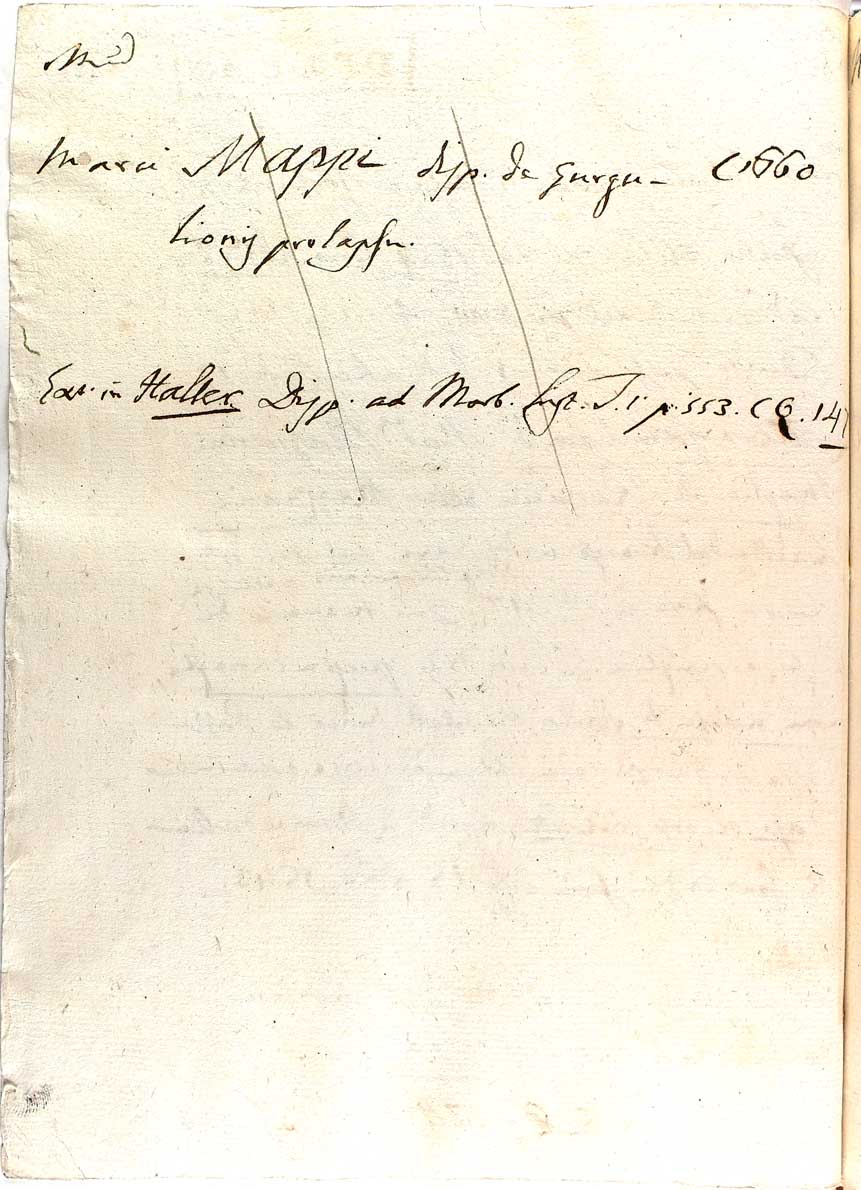 Med
Marci Mappi disp. de Gurgu- (1660
lionis prolapsu.
Ext. in Haller Disp. ad Morb. hist. T. 1. p. 553. ( G. 14